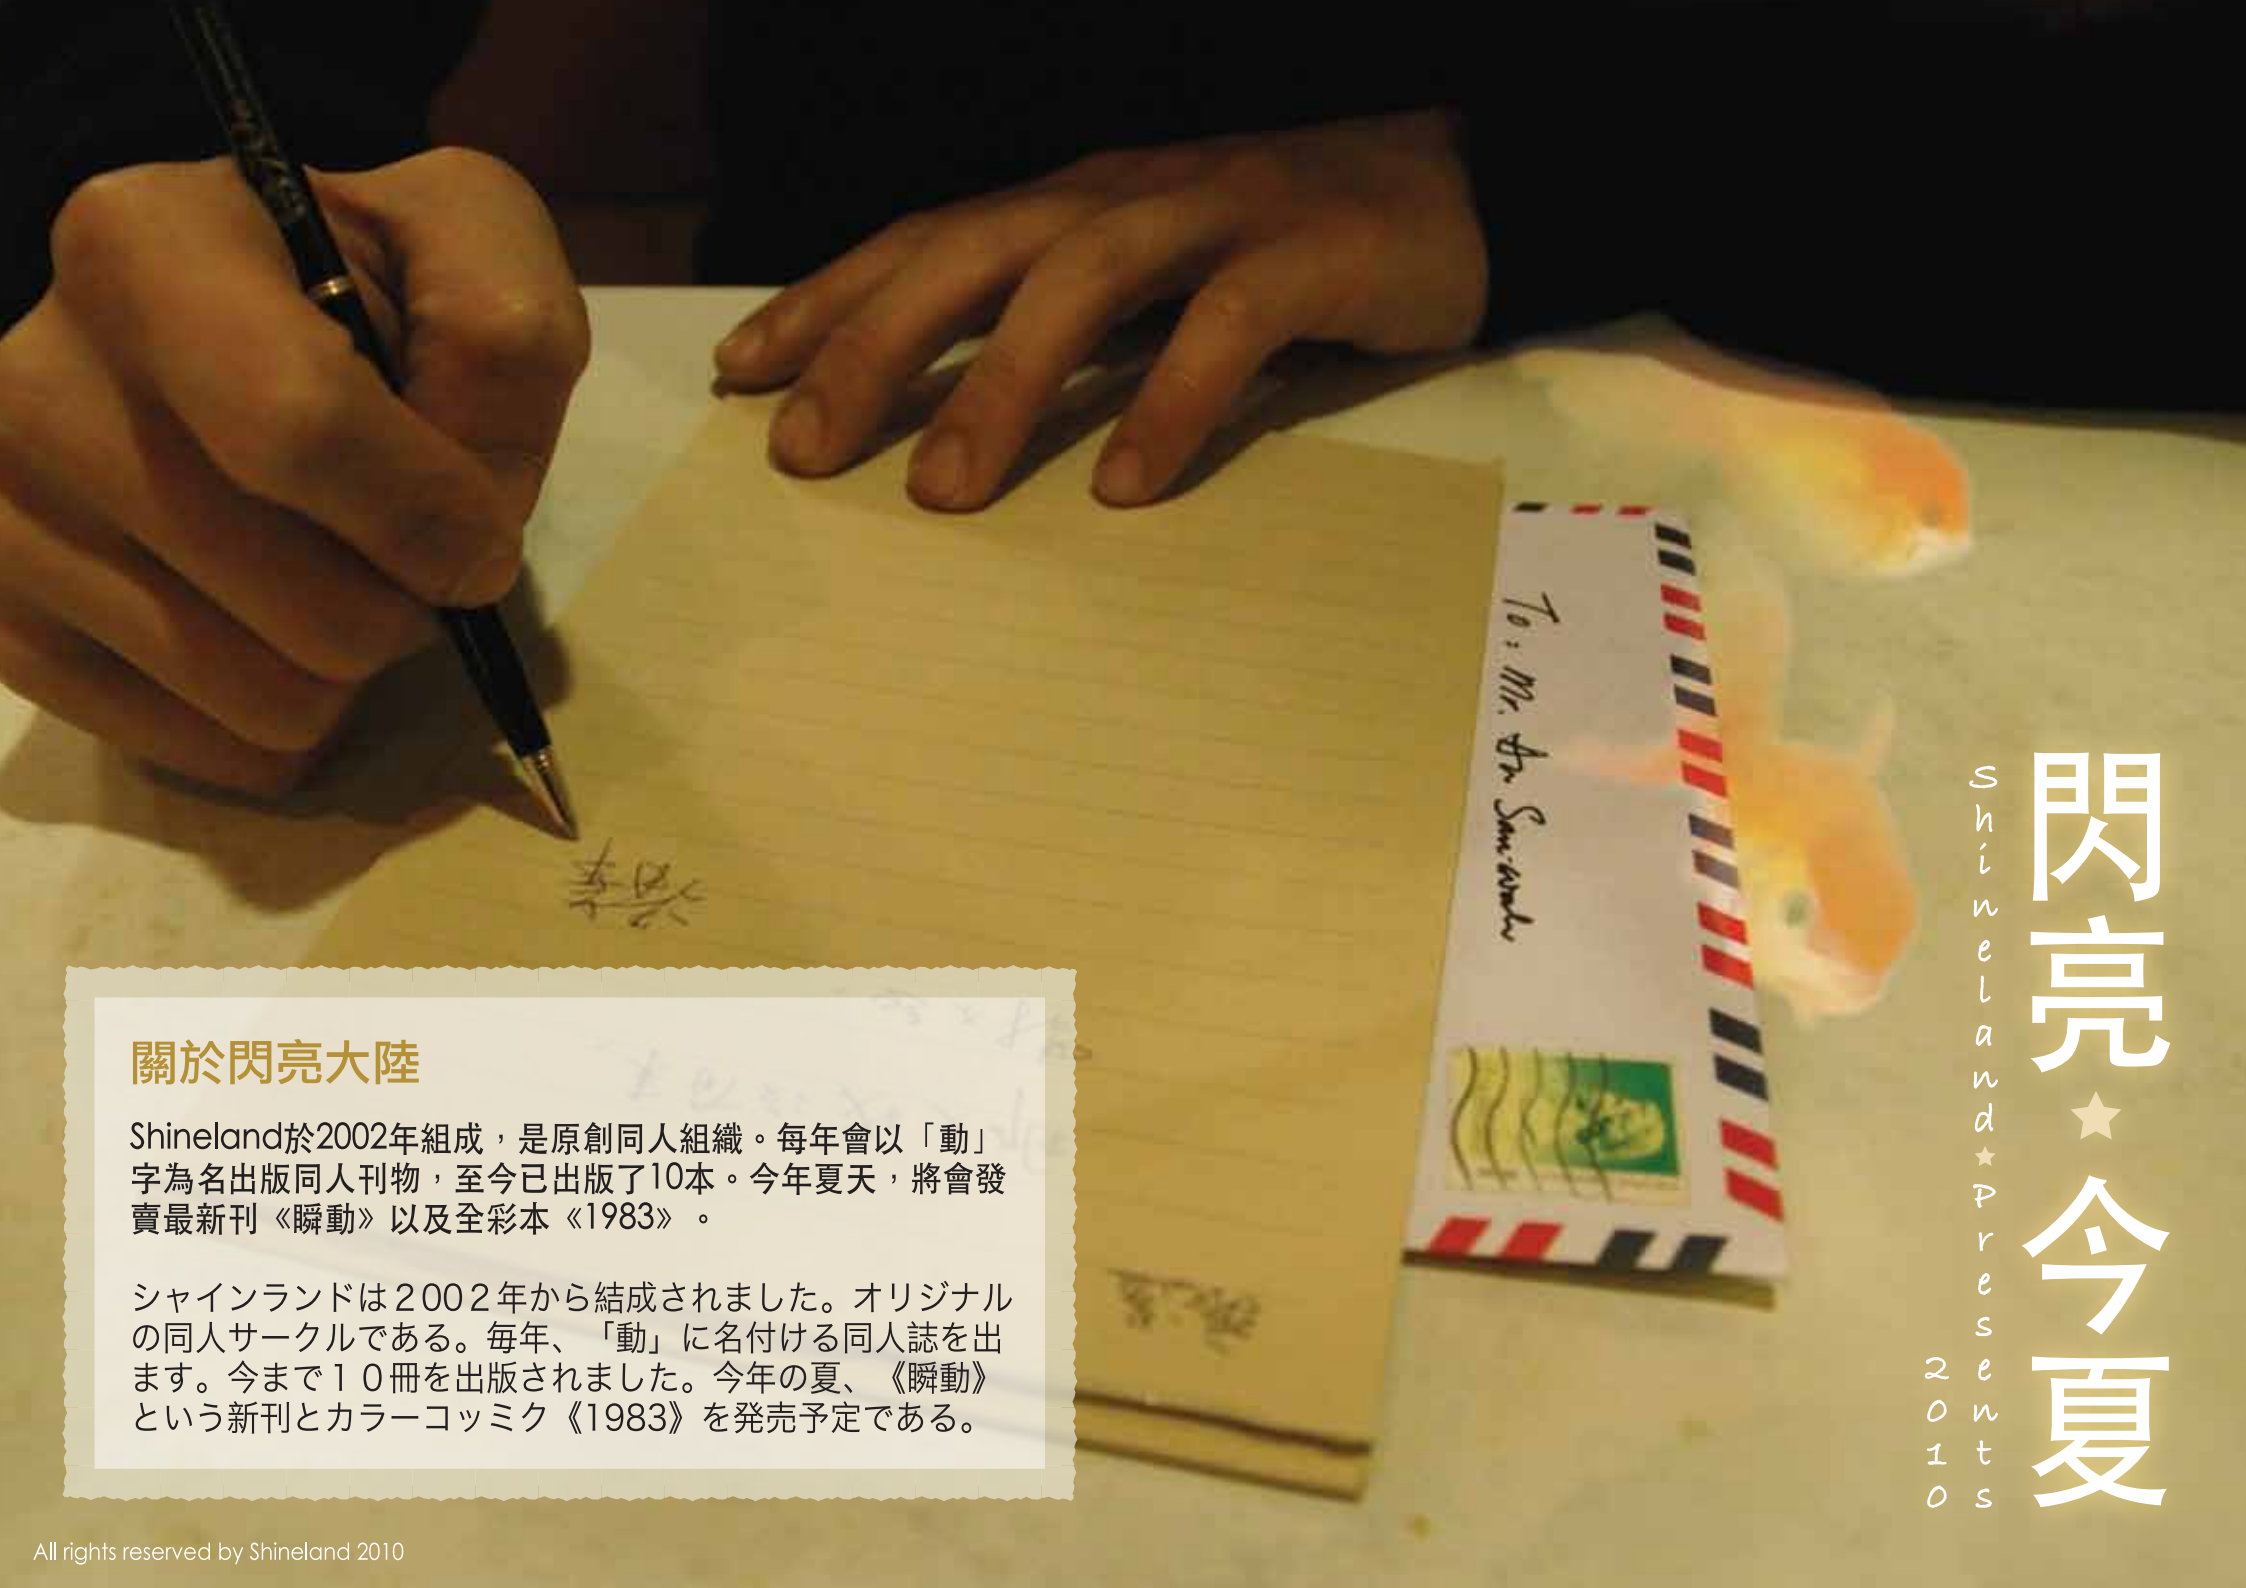 To: Mr.
閃亮★今夏
Shineland★Presents
2010
關於閃亮大陸
Shineland於2002年組成，是原創同人組織。每年會以「動」
字為名出版同人刊物，至今已出版了10本。今年夏天，將會發
賣最新刊《瞬動》以及全彩本《1983》。
シャインランドは２００２年から結成されました。オリジナル
の同人サークルである。毎年、「動」に名付ける同人誌を出
ます。今まで１０冊を出版されました。今年の夏、《瞬動》
という新刊とカラーコッミク《1983》を発売予定である。
All rights reserved by Shineland 2010